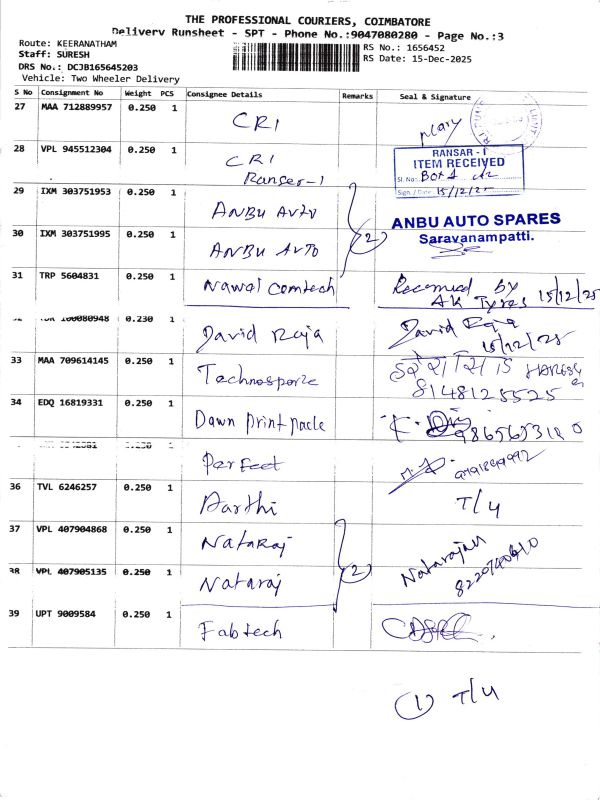 THE PROFESSIONAL COURIERS, COIMBATORE
Delivery Runsheet - SPT - Phone No.:9047080280 - Page No.:3
Route: KEERANATHAM
Staff: SURESH
DRS No.: DCJB165645203
Vehicle: Two Wheeler Delivery
RS No.: 1656452
RS Date: 15-Dec-2025
S No Consignment No Weight PCS Consignee Details Remarks Seal & Signature
27 MAA 712889957 0.250 1 CRI
28 VPL 945512304 0.250 1 CRI
Ranser-1
RANSAR - I
ITEM RECEIVED
Sl. No:
Sign. / Date: 15/12/25
29 IXM 303751953 0.250 1 ANBU AUTO
2
ANBU AUTO SPARES
Saravanampatti.
30 IXM 303751995 0.250 1 ANBU AUTO
31 TRP 5604831 0.250 1 Nawal Comtech
by
AK Tyres 15/12/25
0.230 1 David Raja David Raja
15/12/25
33 MAA 709614145 0.250 1
8148125525
34 EDQ 16819331 0.250 1
Perfect
36 TVL 6246257 0.250 1 Aarthi T/4
37 VPL 407904868 0.250 1 Nataraj
2
Natarajan
38 VPL 407905135 0.250 1 Nataraj
39 UPT 9009584 0.250 1 Fabtech
1 T/4